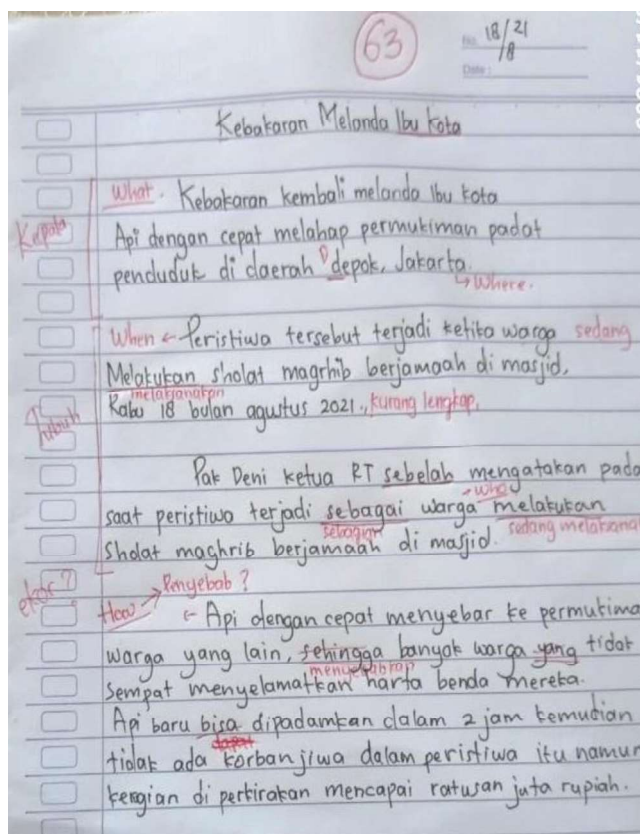 63
No. 18/21
/8
Date :
Kebakaran Melanda Ibu Kota
What. Kebakaran kembali melanda Ibu kota
Kepala
Api dengan cepat melahap permukiman padat
penduduk di daerah depok, Jakarta.
D
↳ Where.
When ← Peristiwa tersebut terjadi ketika warga sedang
Melakukan sholat magrhib berjamaah di masjid,
melaksanakan
Rabu 18 bulan agustus 2021., kurang lengkap.
Tubuh
Pak Deni ketua RT sebelah mengatakan pada
who
saat peristiwa terjadi sebagai warga melakukan
sebagian
sedang melaksana
Sholat maghrib berjamaah di masjid.
ekor?
Penyebab?
How ← Api dengan cepat menyebar ke permukima
warga yang lain, sehingga banyak warga yang tidak
Sempat menyelamatkan harta benda mereka.
Api baru bisa dipadamkan dalam 2 jam kemudian
dapat
tidak ada korban jiwa dalam peristiwa itu namun
kerugian di perkirakan mencapai ratusan juta rupiah.